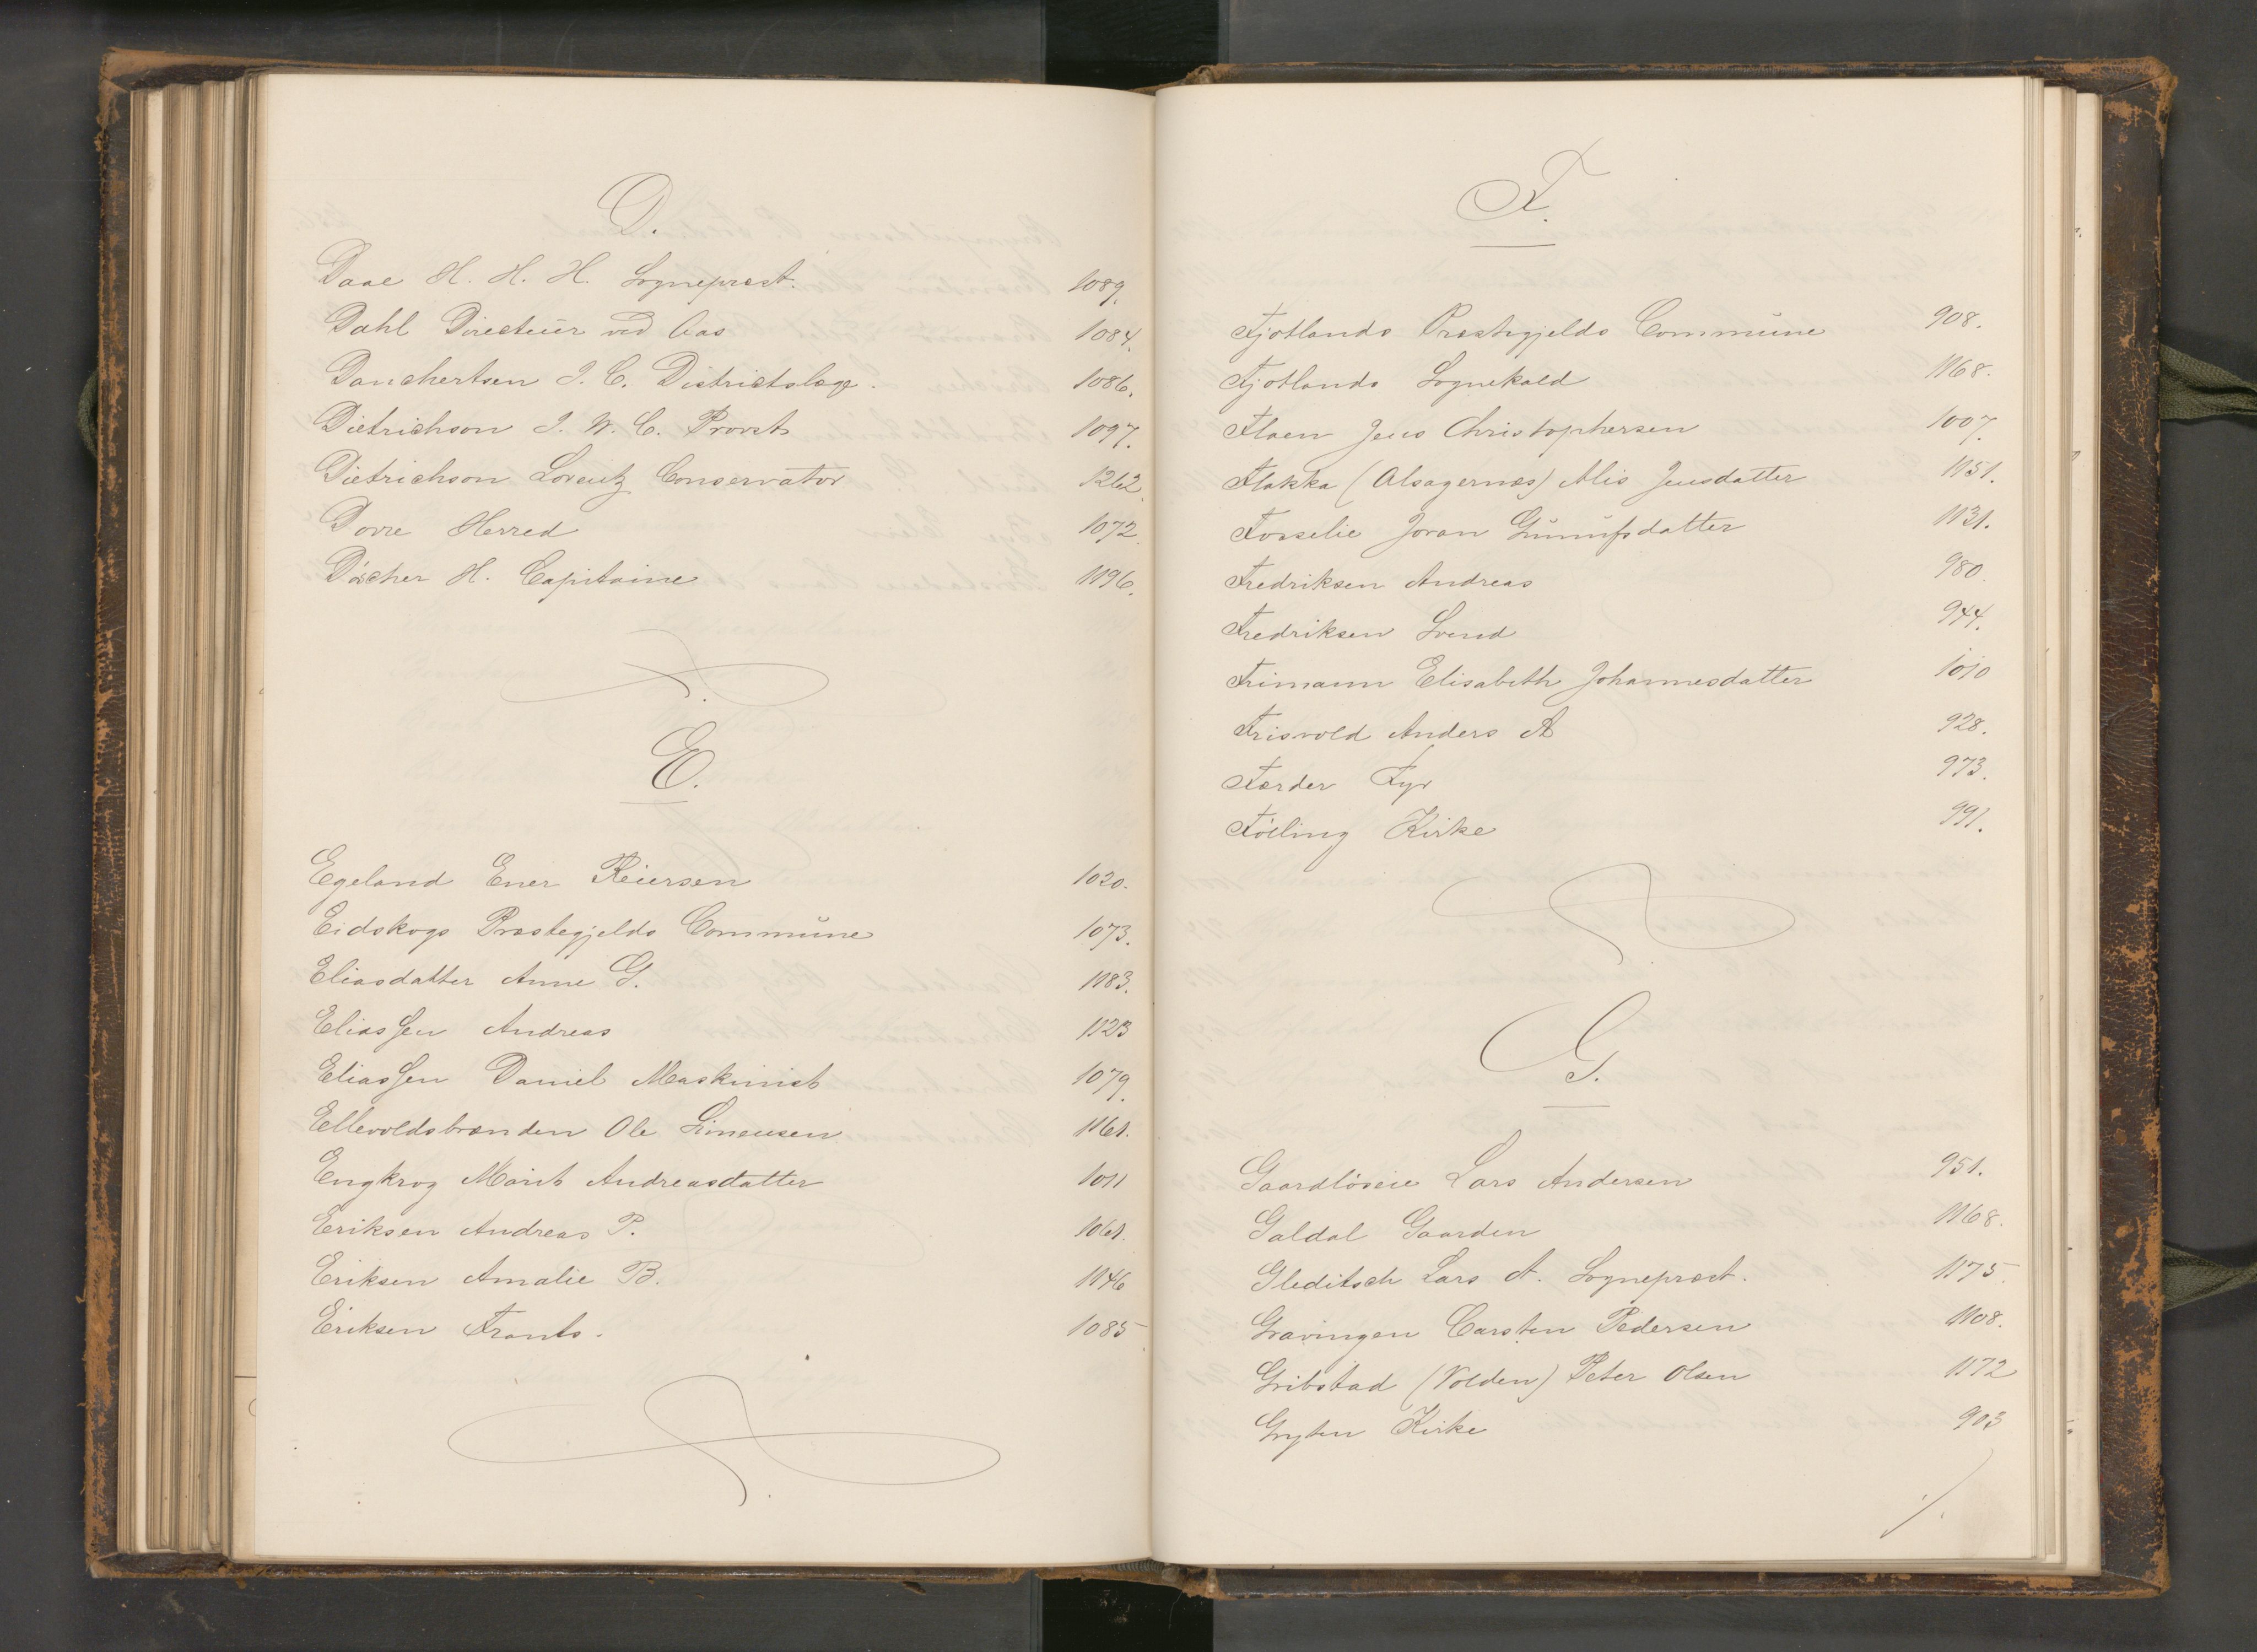 D.
Daae H. H. H. Sogneprest. 1089.
Dahl Directeur ved Aas 1084.
Danchertsen I. C. Districtslæge. 1086.
Dietrichson I. W. C. Provst 1097.
Dietrichson Lorentz Conservator 1262.
Dovre Herred 1072.
Döscher H. Capitaine 1196.
E.
Egeland Ener Reiersen 1020.
Eidskogs Præstegjelds Commune 1073.
Eliasdatter Anne G. 1183.
Eliassen Andreas 1123
Eliassen Daniel Maskinist 1079.
Ellevoldsbrænden Ole Simensen 1161.
Engkrog Marit Andreasdatter 1011
Eriksen Andreas P. 1061.
Eriksen Amalie B. 1146
Eriksen Frants. 1085
F.
Fjotlands Præstegjelds Commune 908.
Fjotlands Sognekald 1168.
Floen Jens Christophersen 1007.
Flakka (Alsagernæs) Alis Jensdatter 1151.
Fosselie Joran Gunulfsdatter 1131.
Fredriksen Andreas 980.
Fredriksen Svend 944.
Friimann Elisabeth Johannesdatter 1010
Frisvold Anders A 928.
Færder Fyr 973.
Fölling Kirke 991.
G.
Gaardløseie Lars Andersen 951.
Galdal Gaarden 1168.
Gleditsch Lars A. Sogneprest. 1175.
Gravingen Carsten Pedersen 1108.
Gribstad (Volden) Peter Olsen 1172
Gryten Kirke 903
/.